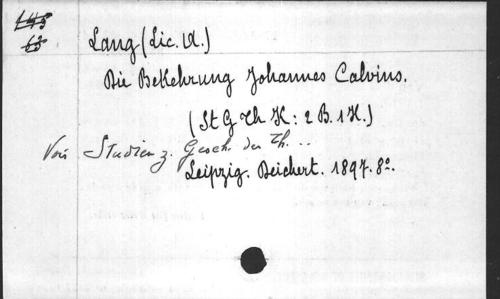 145
63
Lang (Lic. A.)
Die Bekehrung Johannes Calvins.
(St G Th K: 2 B. 1 H.)
Voir Studien z. Gesch. der Th. ..
Leipzig. Deichert. 1897. 8°.